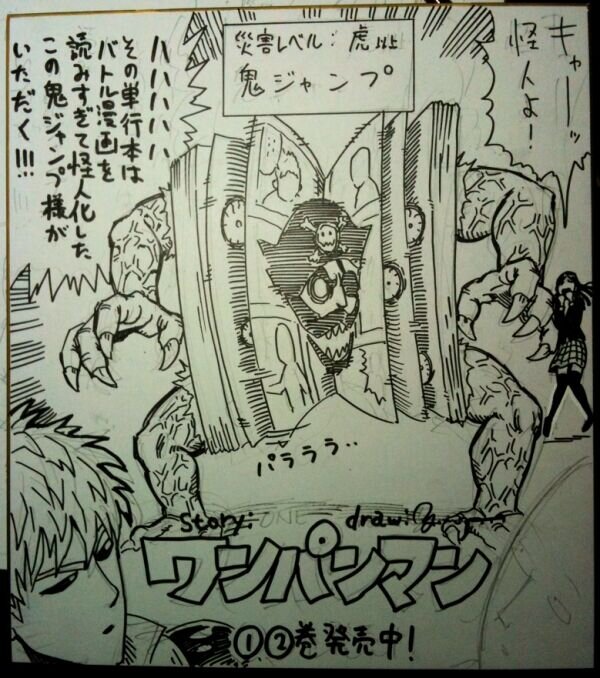 キャーッ
怪人よ!
災害レベル:虎
鬼ジャンプ
ハハハハハ
その単行本は
バトル漫画を
読みすぎて怪人化した
この鬼ジャンプ様が
いただく!!!
パラララ..
story: ONE draw:
ワンパンマン
①②巻発売中!